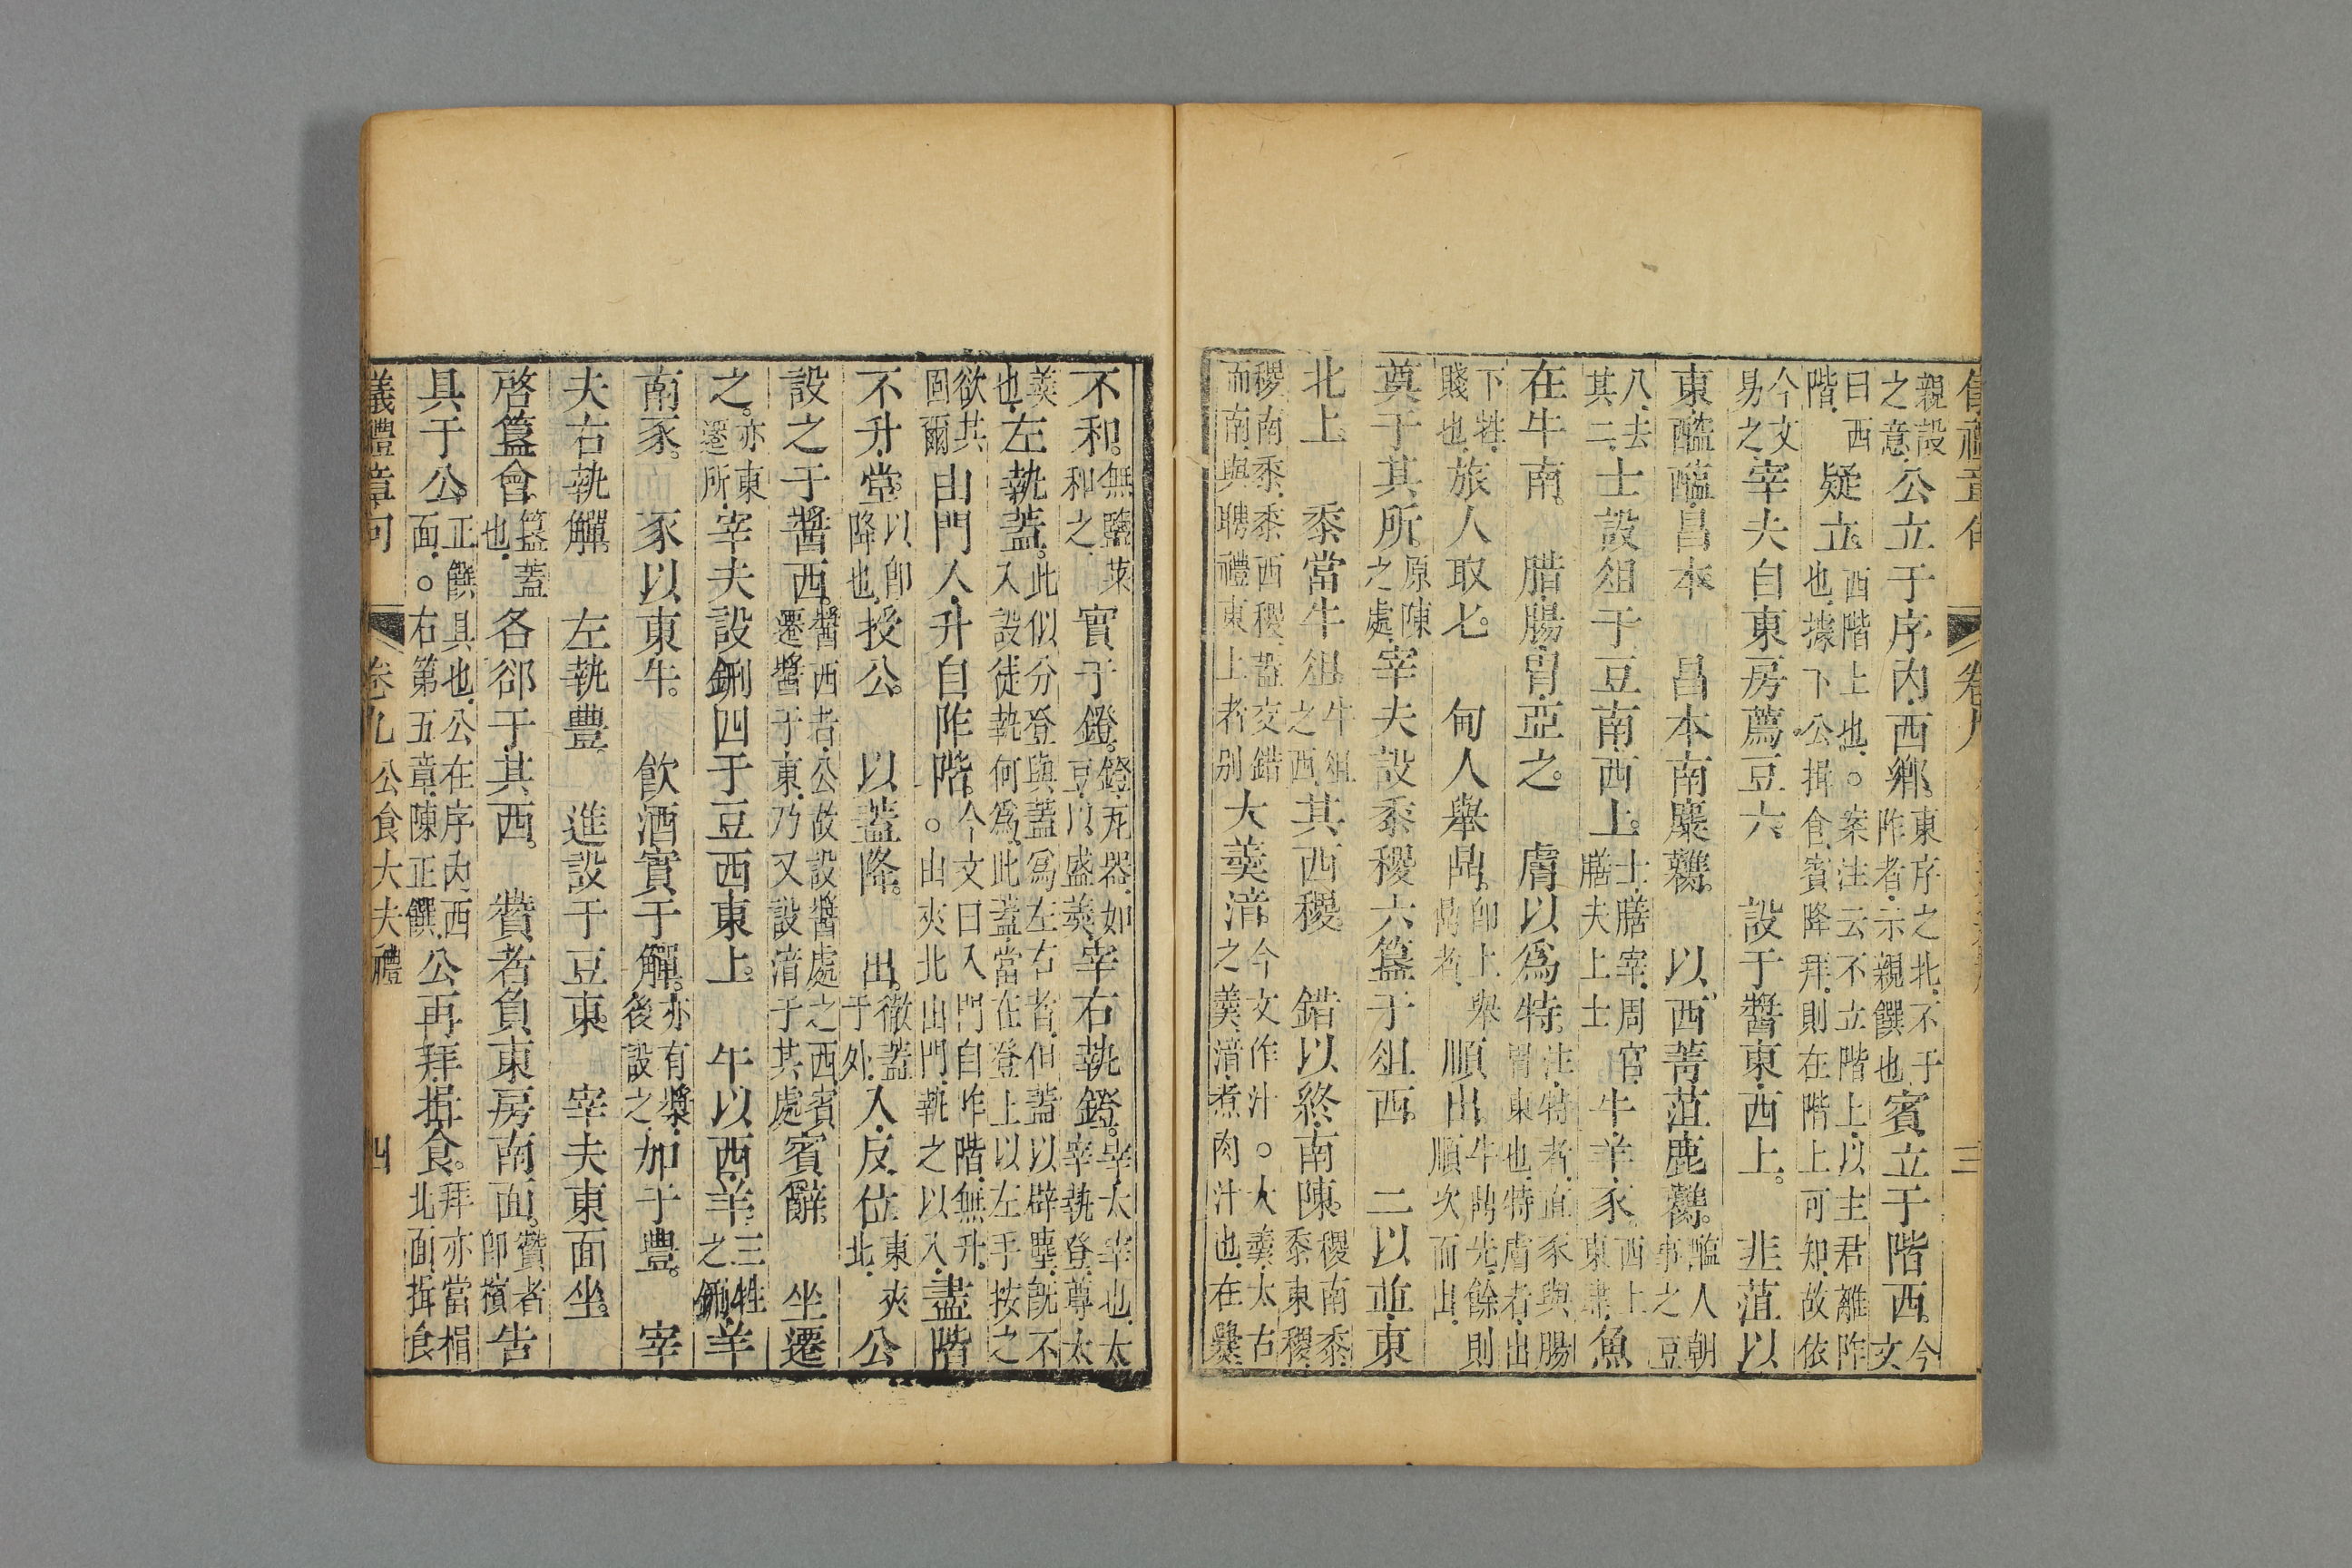 親設之意公立于序内西鄉。東序之北不于阼者示親饌也賓立于階西。今文
曰西階疑立。西階上也。○案注云不立階上以主君離阼也據下公揖食賓降拜則在階上可知故依
今文易之宰夫自東房薦豆六。設于醬東西上。韭菹以
東醓醢昌本。昌本南麋臡。以西菁菹鹿臡。醢人朝事之豆
八去其二士設俎于豆南西上。士膳宰周官膳夫上士牛羊豕。西上東肆魚
在牛南。腊腸胃亞之。膚以爲特。注特者直豕與腸胃東也特膚者出
下牲賤也旅人取匕。甸人舉鼎。卽上舉鼎者順出。牛鼎先餘則順次而出
奠于其所。原陳之處宰夫設黍稷六簋于俎西。二以並東
北上。黍當牛俎。牛俎之西其西稷。錯以終南陳。稷南黍黍東稷
稷南黍黍西稷葢交錯而南與聘禮東上者别大羹湆。今文作汁。○大羹太古之羹湆煮肉汁也在爨
不和。無鹽菜和之實于鐙。鐙瓦器如豆以盛羹宰右執鐙。宰太宰也太宰執登尊太
羹也左執蓋。此似分登與蓋爲左右者但蓋以辟塵旣不入設徒執何爲此蓋當在登上以左手按之
欲其固爾由門入升自阼階。今文曰入門自阼階無升。○由夾北由門執之以入盡階
不升堂。以卽降也授公。以蓋降。出。徹蓋于外入反位。東夾北公
設之于醬西。醬西者公故設醬處之西賓遷醬于東乃又設湆于其處賓辭。坐遷
之。亦東遷所宰夫設鉶四于豆西東上。牛以西羊。三牲之鉶羊
南豕。豕以東牛。飲酒實于觶。亦有漿後設之加于豐。宰
夫右執觶。左執豐。進設于豆東。宰夫東面坐。
啓簋會。簋蓋也各郤于其西。贊者負東房南面。贊者卽擯告
具于公。正饌具也公在序内西面。○右第五章陳正饌公再拜揖食。拜亦當楣北面揖食
儀禮章句 卷九 公食大夫禮 四